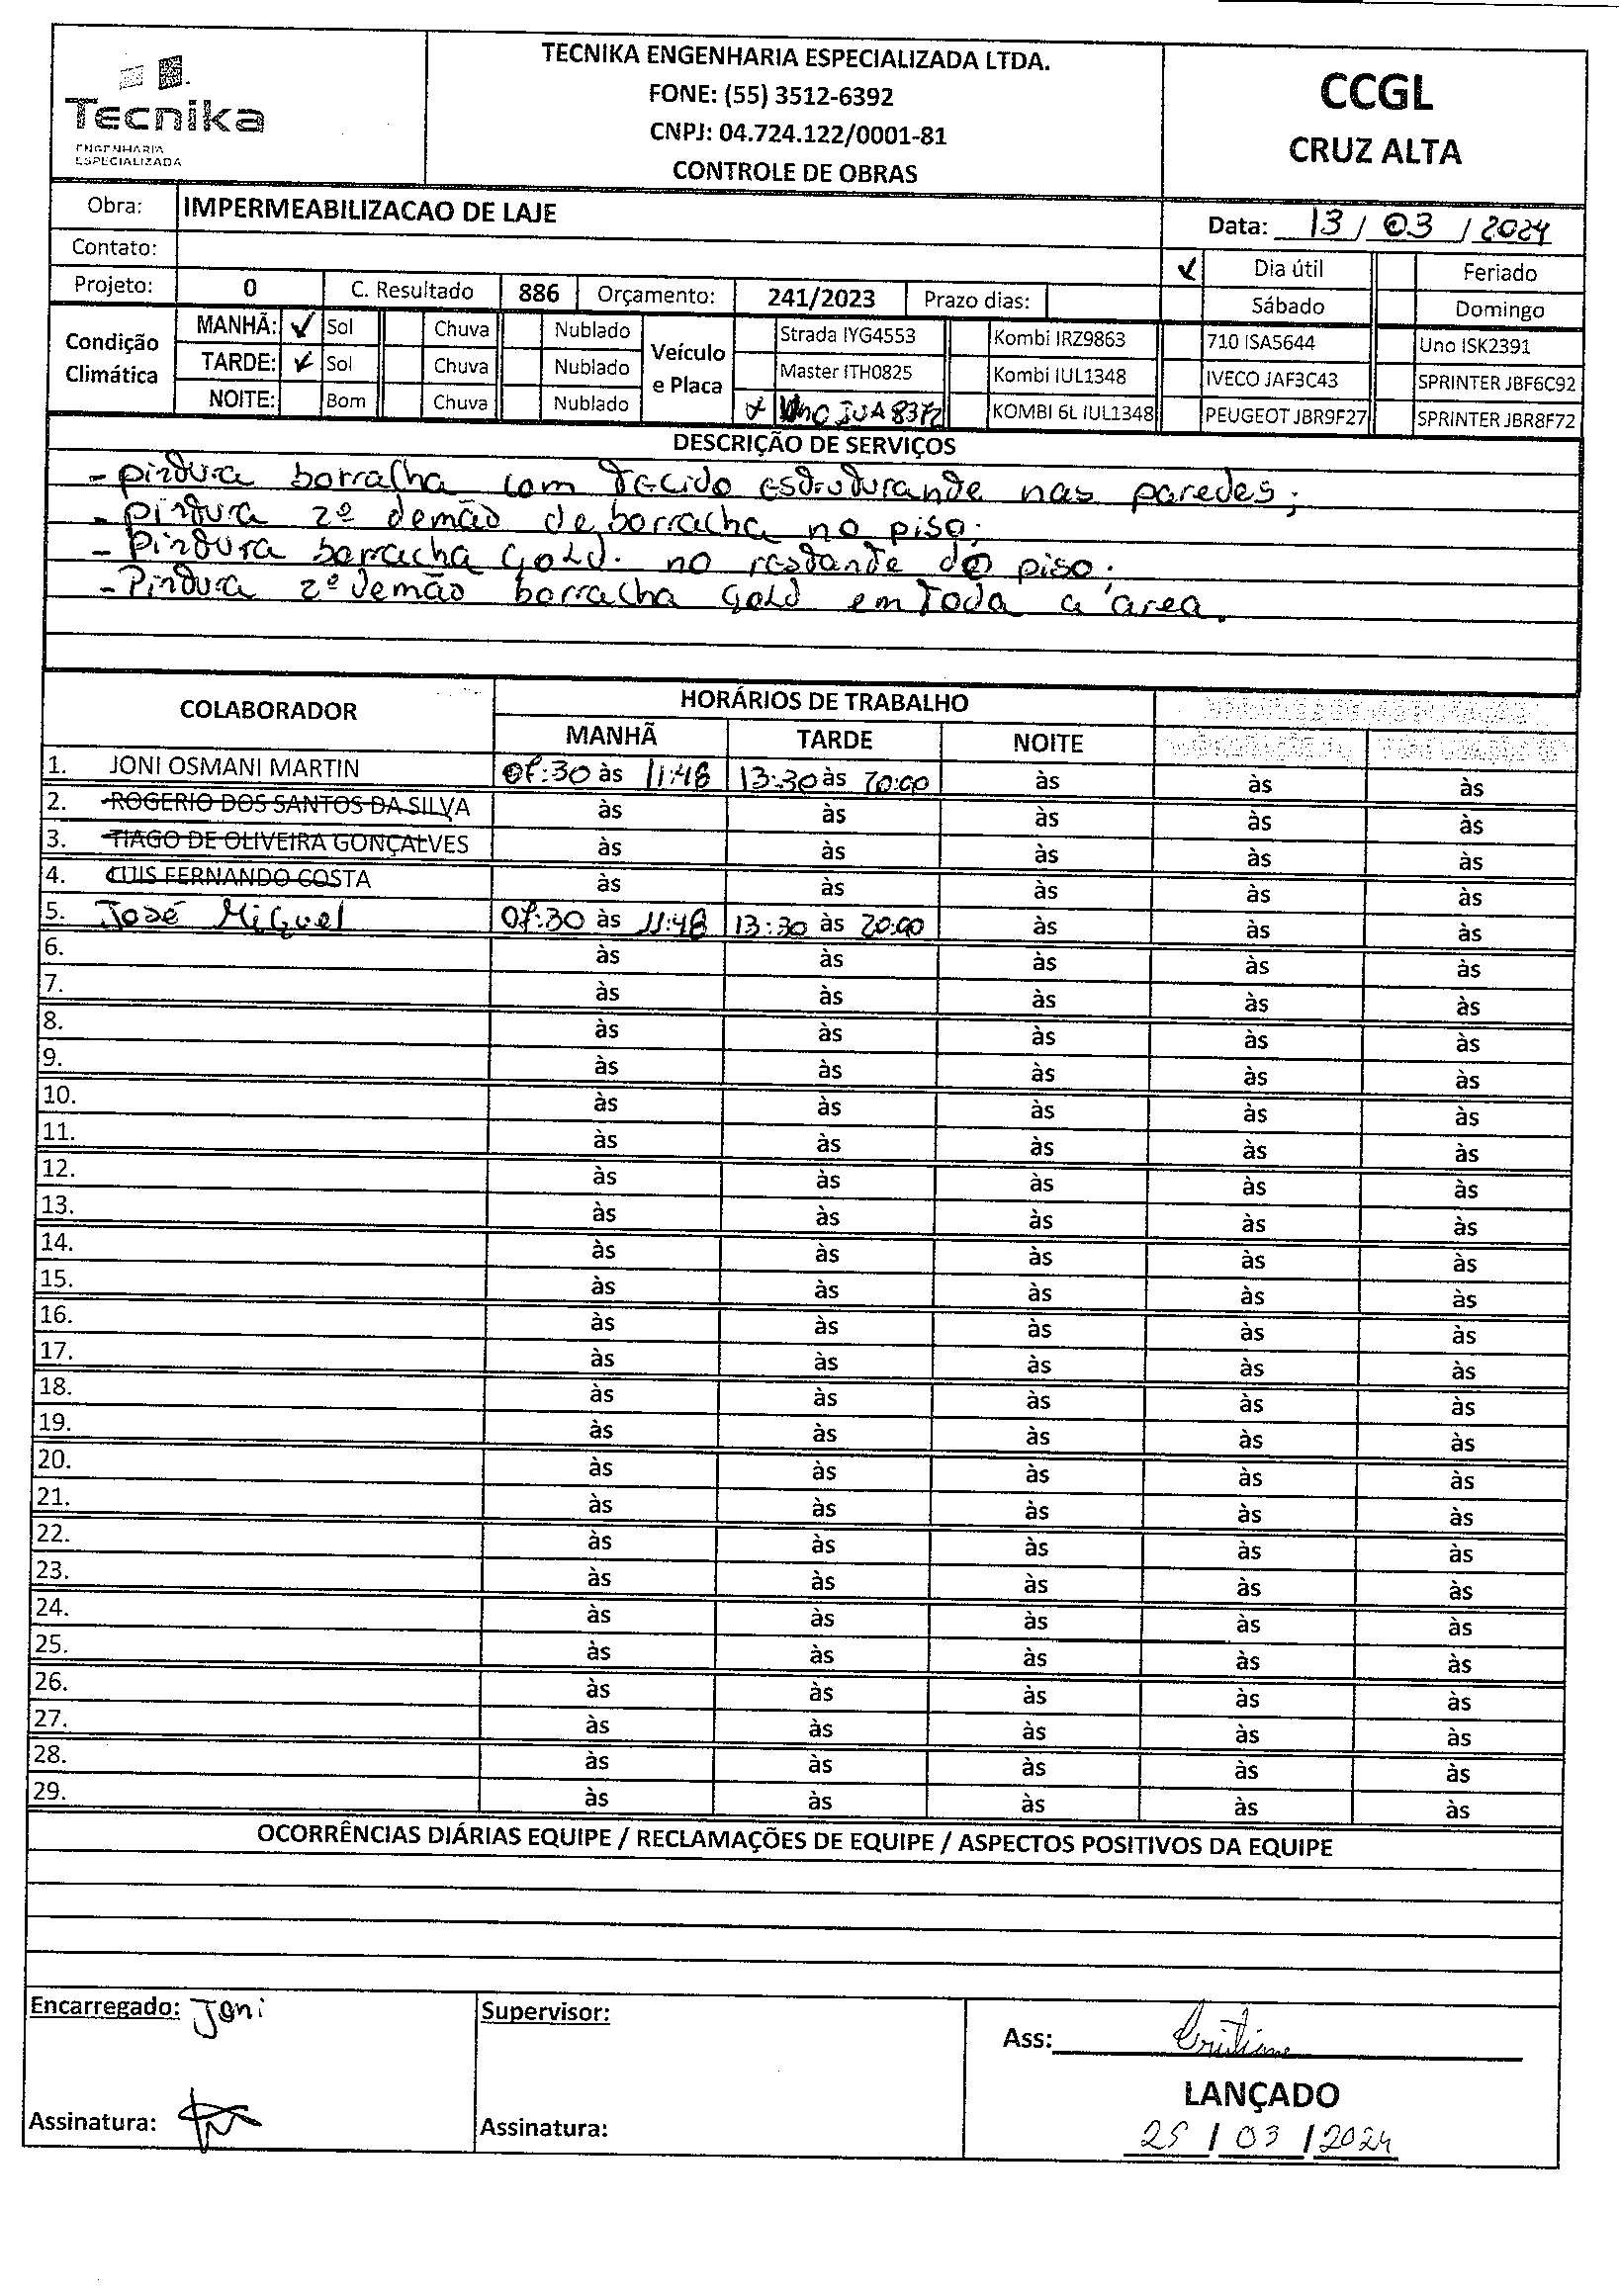 Tecnika
ENGENHARIA
ESPECIALIZADA
TECNIKA ENGENHARIA ESPECIALIZADA LTDA.
FONE: (55) 3512-6392
CNPJ: 04.724.122/0001-81
CONTROLE DE OBRAS
CCGL
CRUZ ALTA
Obra: IMPERMEABILIZACAO DE LAJE
Data: 13 / 03 / 2024
Contato:
Dia útil Feriado
Projeto: 0 C. Resultado 886 Orçamento: 241/2023 Prazo dias: Sábado Domingo
Condição Climática
MANHÃ: Sol Chuva Nublado
TARDE: Sol Chuva Nublado
NOITE: Bom Chuva Nublado
Veículo e Placa
Strada IYG4553 Kombi IRZ9863 710 ISA5644 Uno ISK2391
Master ITH0825 Kombi IUL1348 IVECO JAF3C43 SPRINTER JBF6C92
Uno IUA 8372 KOMBI 6L IUL1348 PEUGEOT JBR9F27 SPRINTER JBR8F72
DESCRIÇÃO DE SERVIÇOS
- pintura borracha com tecido estruturante nas paredes;
- pintura 2º demão de borracha no piso;
- pintura borracha Gold. no restante do piso;
- Pintura 2º demão borracha Gold em toda a área.
COLABORADOR HORÁRIOS DE TRABALHO
MANHÃ TARDE NOITE
1. JONI OSMANI MARTIN 07:30 às 11:48 13:30 às 20:00 às às às
2. ROGERIO DOS SANTOS DA SILVA às às às às às
3. TIAGO DE OLIVEIRA GONÇALVES às às às às às
4. LUIS FERNANDO COSTA às às às às às
5. José Miguel 07:30 às 11:48 13:30 às 20:00 às às às
6. às às às às às
7. às às às às às
8. às às às às às
9. às às às às às
10. às às às às às
11. às às às às às
12. às às às às às
13. às às às às às
14. às às às às às
15. às às às às às
16. às às às às às
17. às às às às às
18. às às às às às
19. às às às às às
20. às às às às às
21. às às às às às
22. às às às às às
23. às às às às às
24. às às às às às
25. às às às às às
26. às às às às às
27. às às às às às
28. às às às às às
29. às às às às às
OCORRÊNCIAS DIÁRIAS EQUIPE / RECLAMAÇÕES DE EQUIPE / ASPECTOS POSITIVOS DA EQUIPE
Encarregado: Joni
Supervisor:
Ass: Cristiane
LANÇADO
Assinatura:
Assinatura:
25 / 03 / 2024